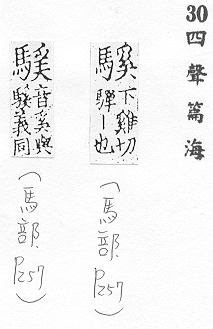 30 四聲篇海
騱下雞切驒一也
(馬部 P257)
音奚與騱義同
(馬部 P257)